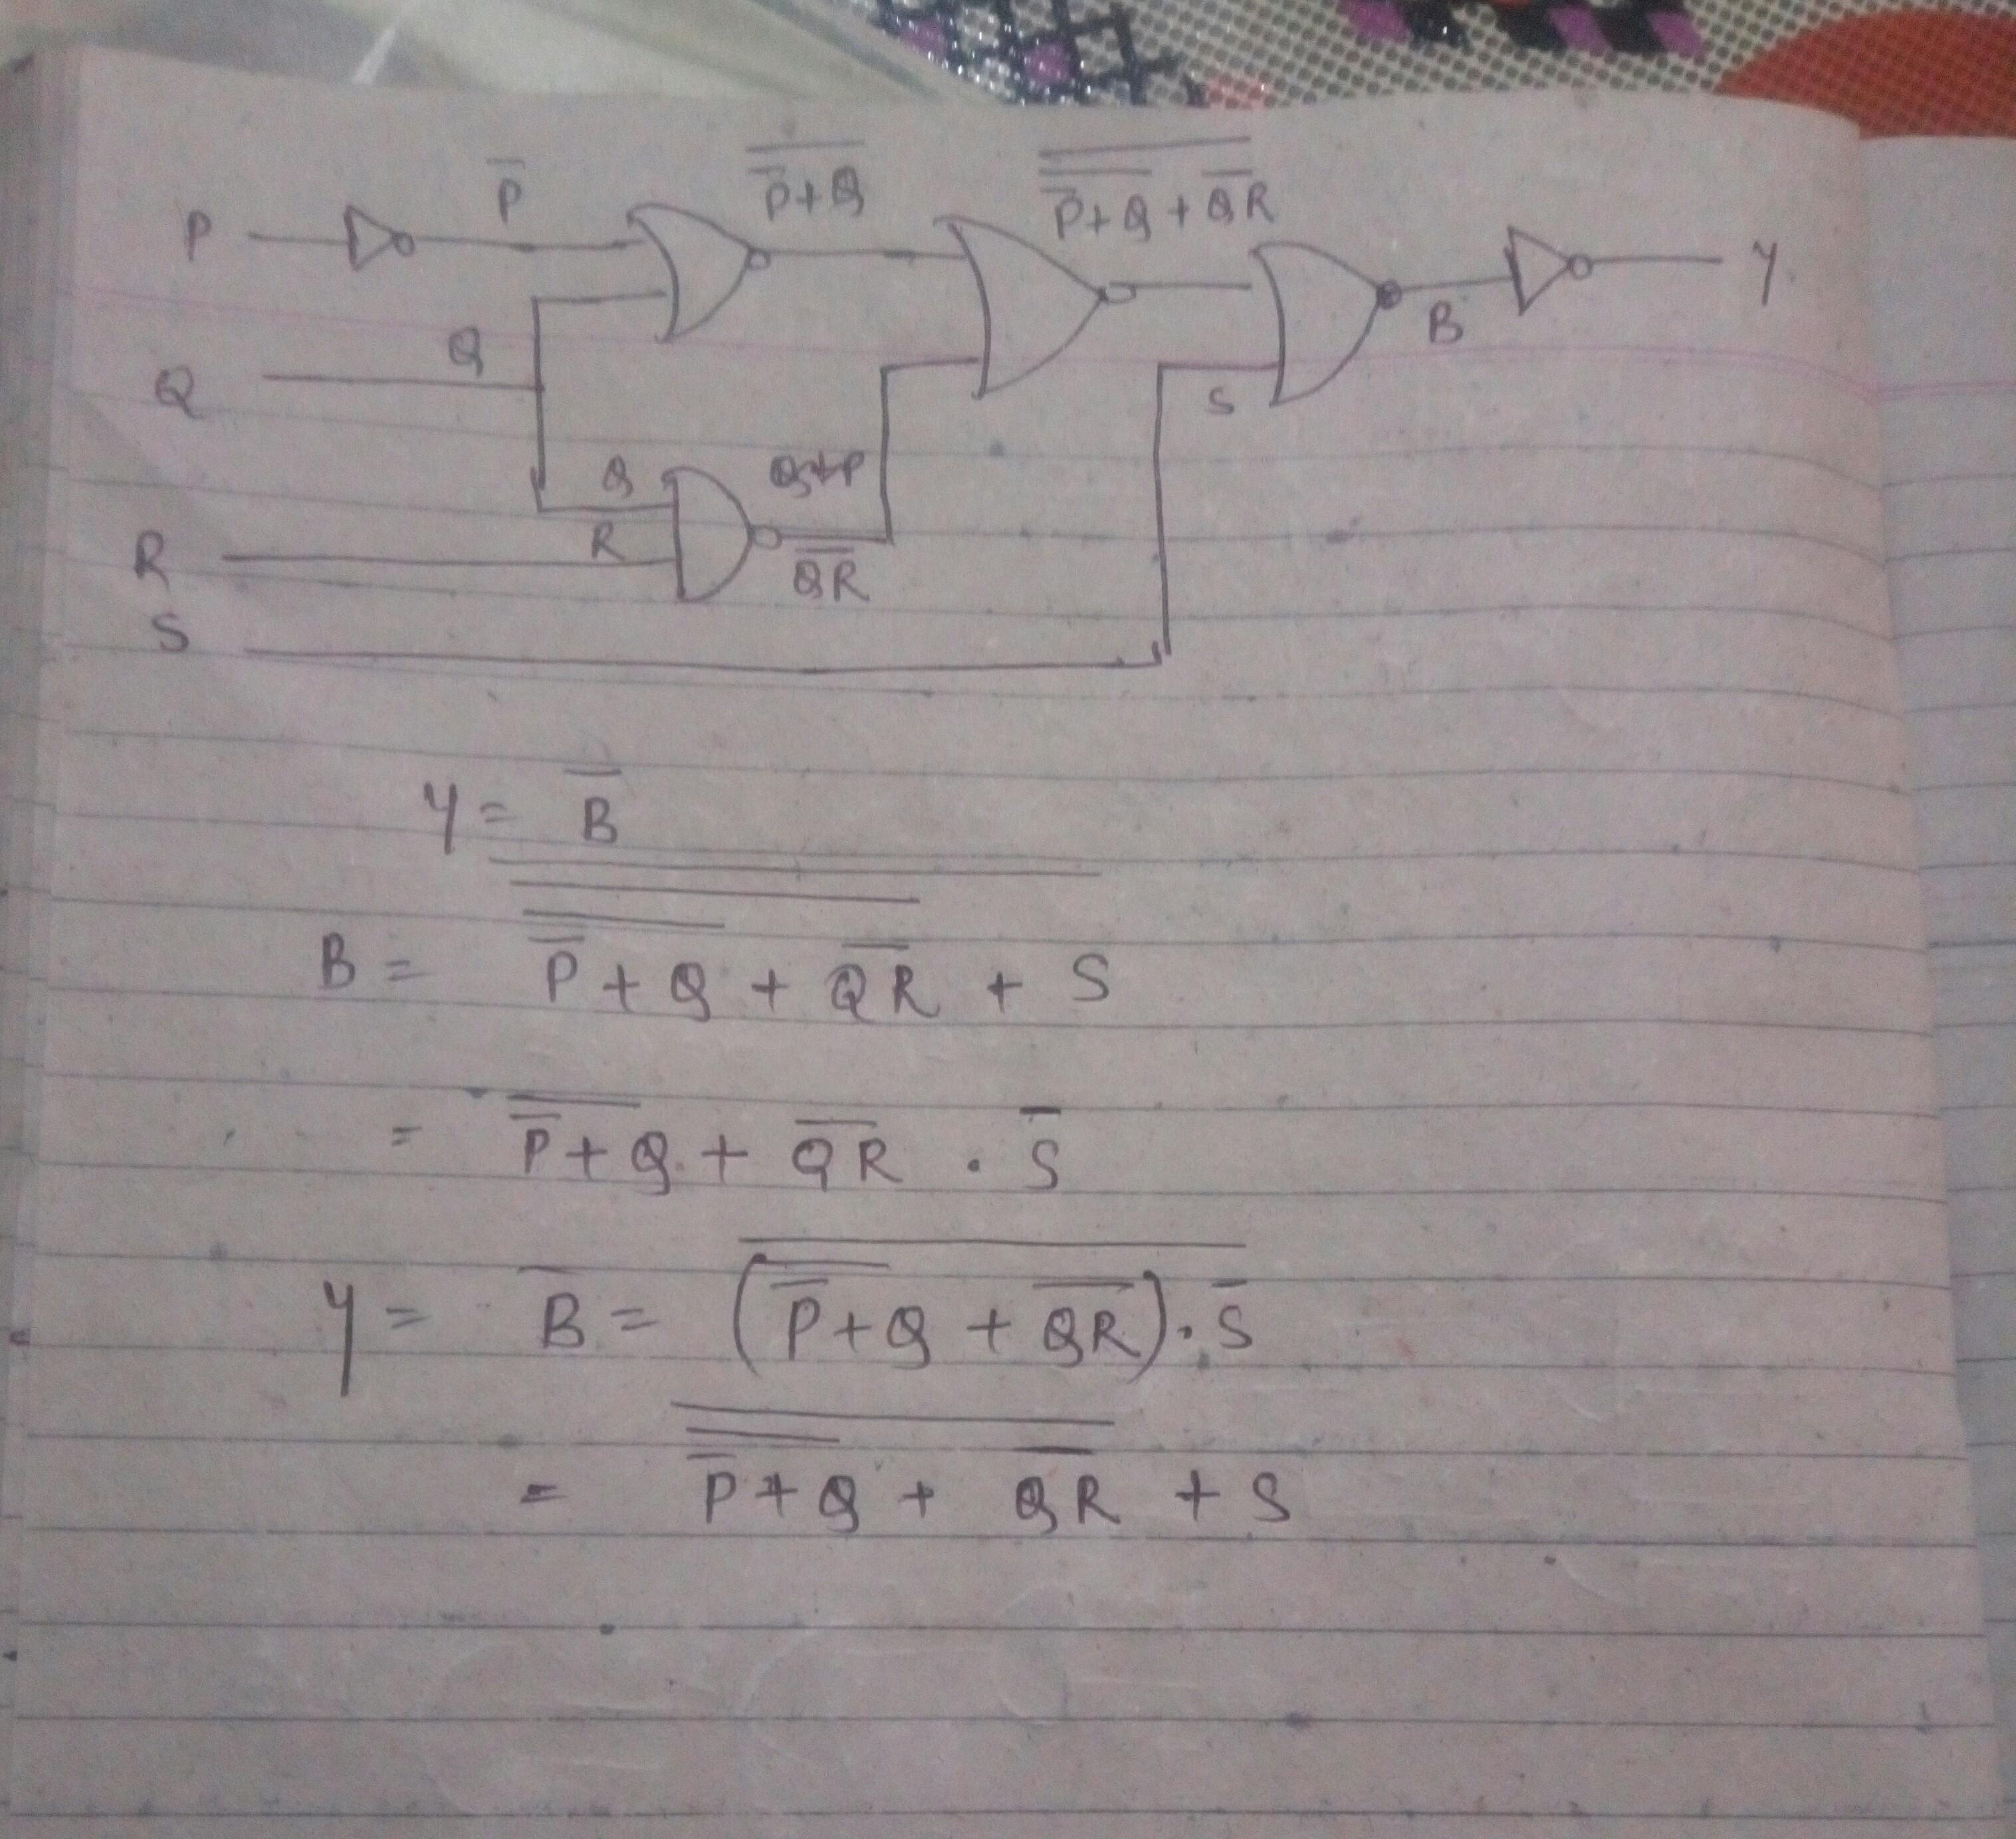 P̅   \overline{\overline{P}+Q}   \overline{\overline{\overline{P}+Q}+\overline{QR}}
P   Y
Q   Q   S   B
Q
R   R   \overline{QR}
S
Y = \overline{B}
B = \overline{\overline{\overline{\overline{P}+Q}+\overline{QR}}+S}
= \overline{\overline{P}+Q}+\overline{QR} . \overline{S}
Y = \overline{B} = \overline{(\overline{\overline{P}+Q}+\overline{QR}).\overline{S}}
= \overline{\overline{\overline{P}+Q}+\overline{QR}}+S